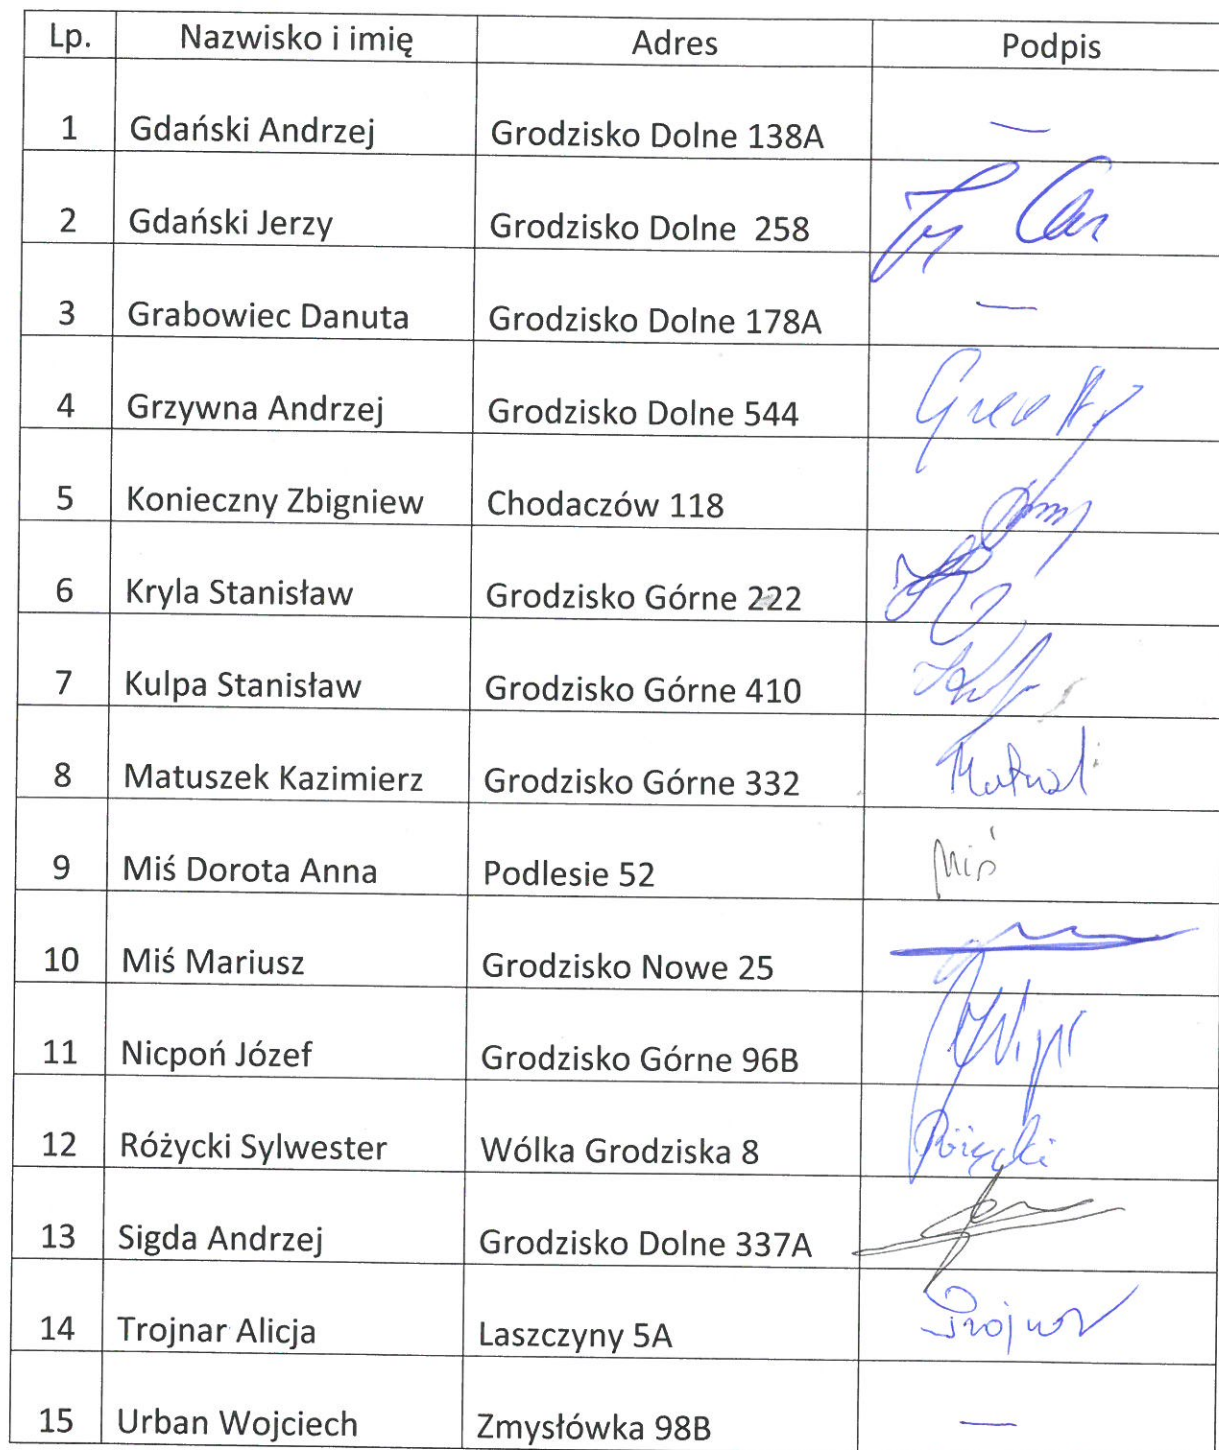 Lp. Nazwisko i imię Adres Podpis
1 Gdański Andrzej Grodzisko Dolne 138A —
2 Gdański Jerzy Grodzisko Dolne 258
3 Grabowiec Danuta Grodzisko Dolne 178A —
4 Grzywna Andrzej Grodzisko Dolne 544
5 Konieczny Zbigniew Chodaczów 118
6 Kryla Stanisław Grodzisko Górne 222
7 Kulpa Stanisław Grodzisko Górne 410
8 Matuszek Kazimierz Grodzisko Górne 332
9 Miś Dorota Anna Podlesie 52 Miś
10 Miś Mariusz Grodzisko Nowe 25
11 Nicpoń Józef Grodzisko Górne 96B
12 Różycki Sylwester Wólka Grodziska 8 Różycki
13 Sigda Andrzej Grodzisko Dolne 337A
14 Trojnar Alicja Laszczyny 5A Trojnar
15 Urban Wojciech Zmysłówka 98B —